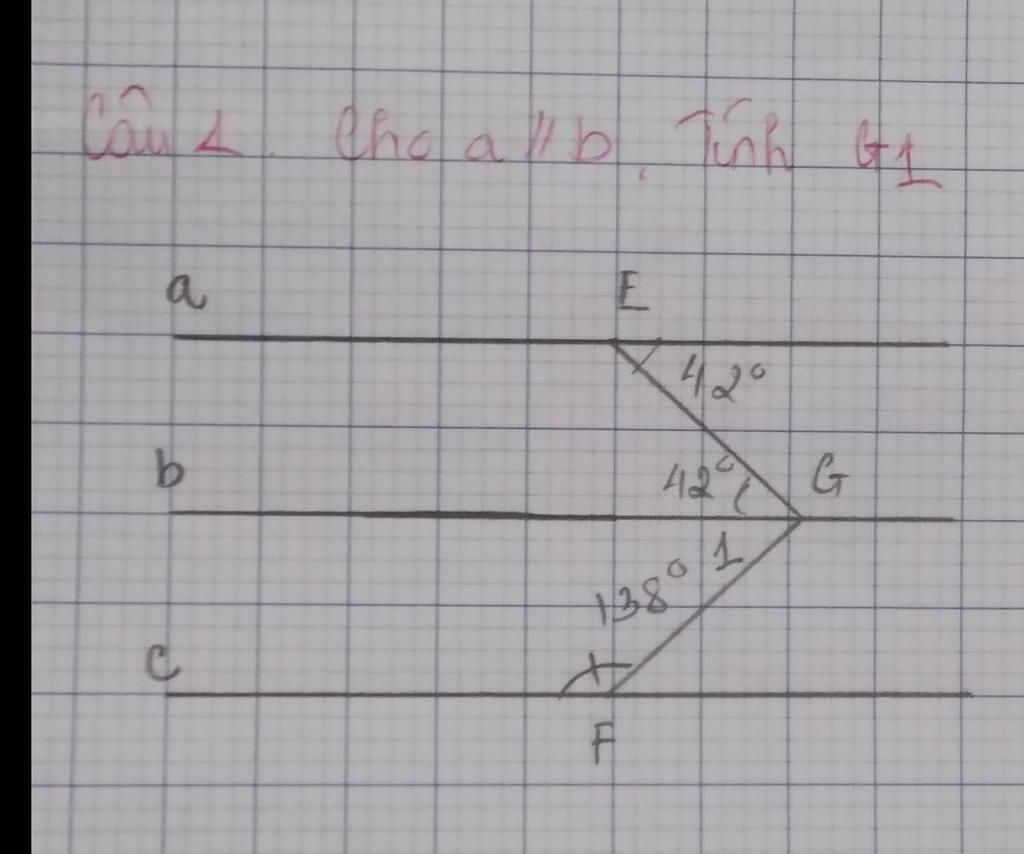 Câu 1. Cho a // b. Tính G1
a
E
42°
b
42°
G
1
138°
c
F